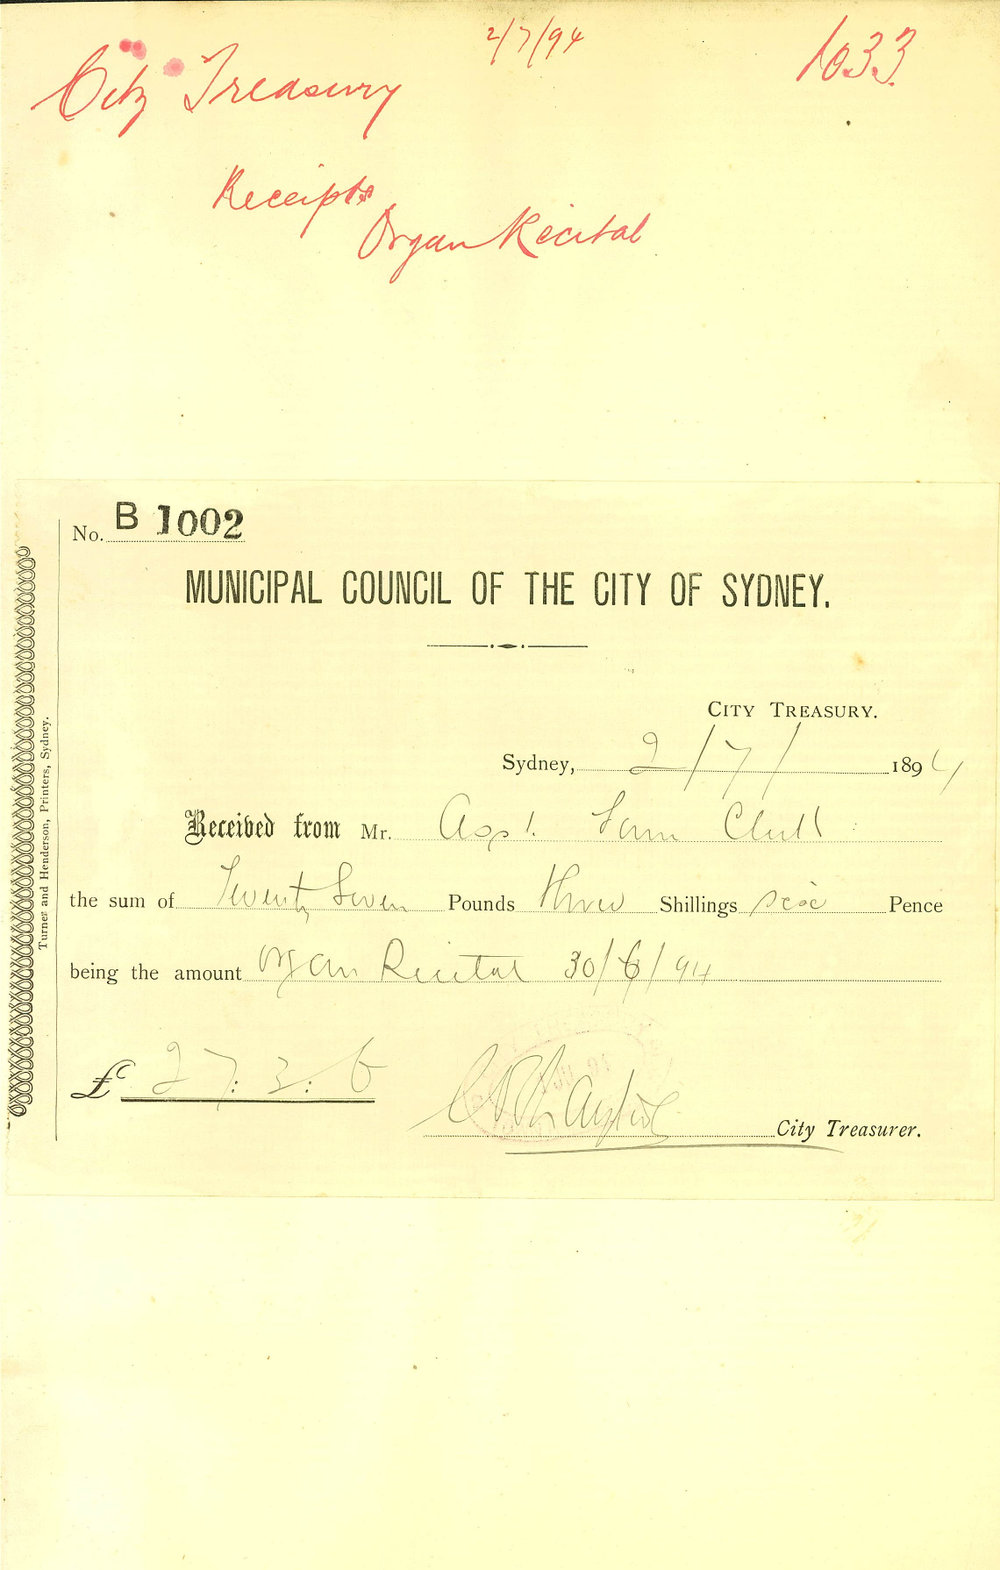 2/7/94
1033
City Treasury
Receipts
Organ Recital
No. B 1002
MUNICIPAL COUNCIL OF THE CITY OF SYDNEY.
CITY TREASURY.
Sydney, 2/7/ 1894
Received from Mr. Asst. Town Clerk
the sum of Twenty Seven Pounds three Shillings six Pence
being the amount Organ Recital 30/6/94
£ 27:3:6
City Treasurer.
Turner and Henderson, Printers, Sydney.